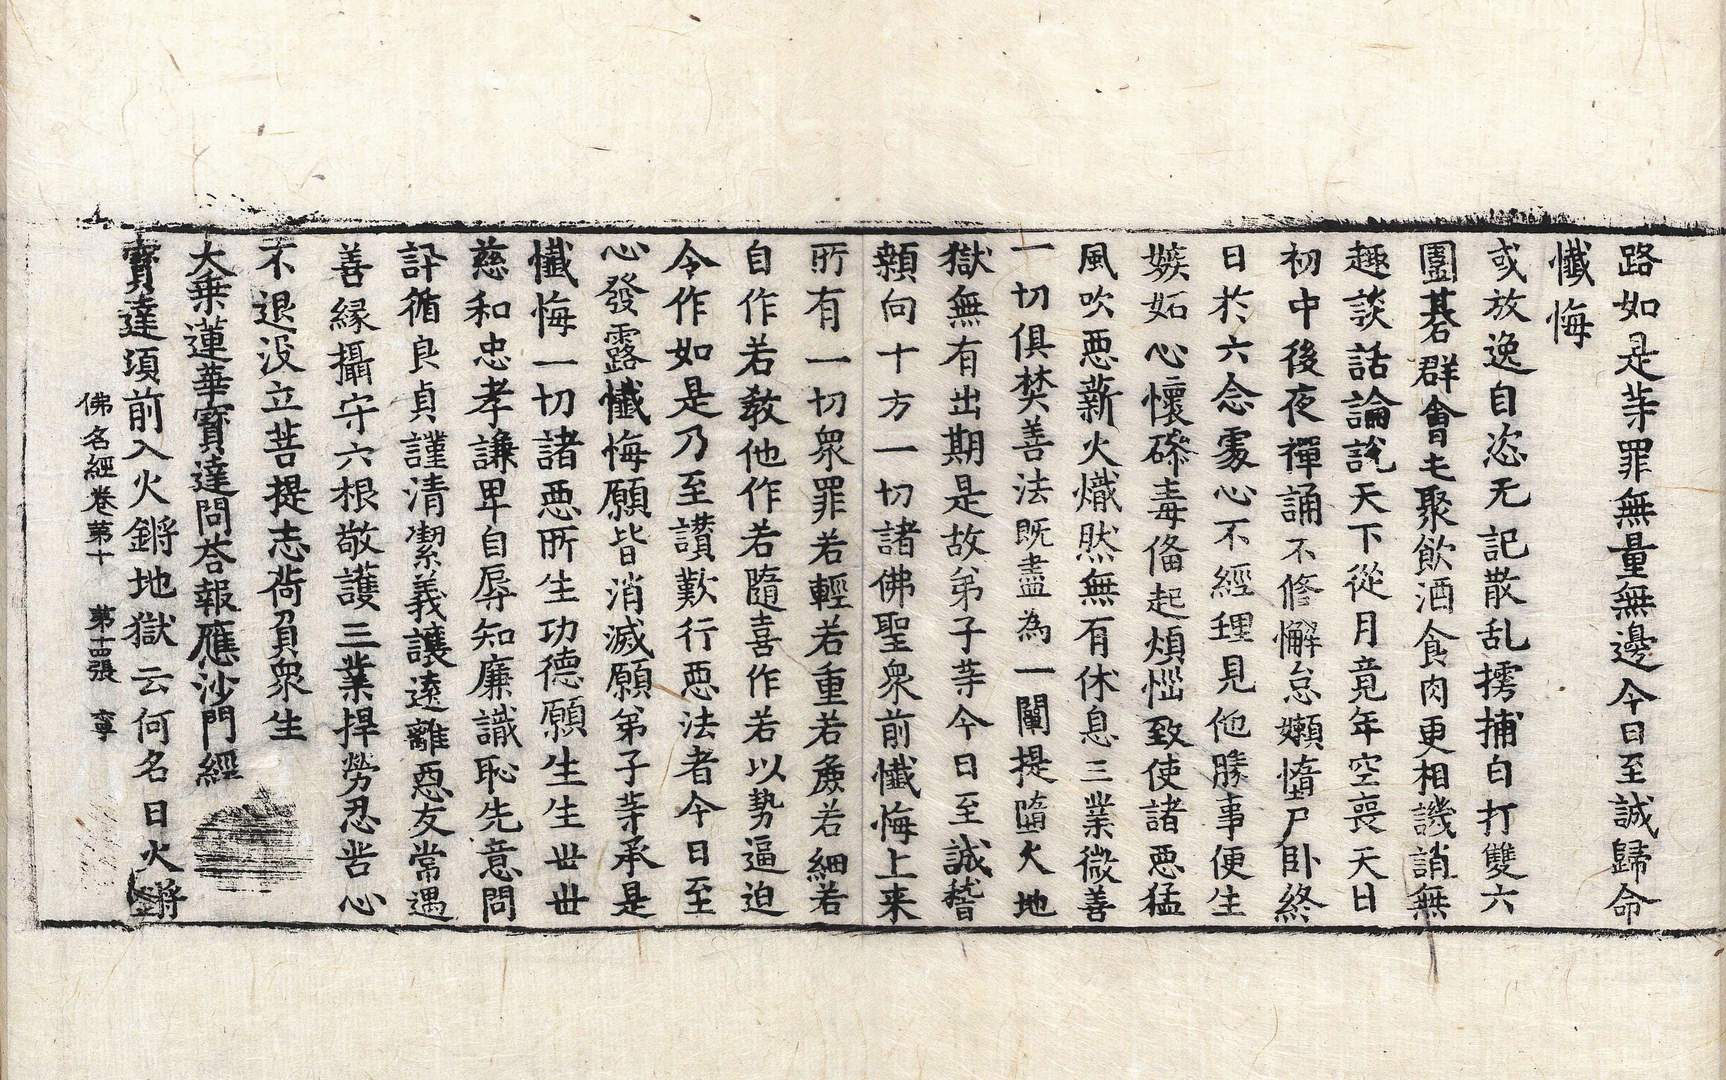 路如是等罪無量無邊今日至誠歸命
懺悔
或放逸自恣无記散乱摴捕白打雙六
圍碁群會屯聚飲酒食肉更相譏誚無
趣談話論說天下從月竟年空喪天日
初中後夜禪誦不修懈怠嬾惰尸卧終
日於六念處心不經理見他勝事便生
嫉妬心懷磣毒俻起煩惱致使諸惡猛
風吹惡薪火熾然無有休息三業微善
一切俱焚善法既盡為一闡提墮大地
獄無有出期是故弟子等今日至誠稽
顙向十方一切諸佛聖衆前懺悔上来
所有一切衆罪若輕若重若麁若細若
自作若教他作若隨喜作若以勢逼迫
令作如是乃至讃歎行惡法者今日至
心發露懺悔願皆消滅願弟子等承是
懺悔一切諸惡所生功德願生生世世
慈和忠孝謙卑自辱知廉識恥先意問
訊循良貞謹清潔義讓遠離惡友常遇
善縁攝守六根敬護三業捍勞忍苦心
不退没立菩提志荷負衆生
大乗蓮華寶達問荅報應沙門經
寶達須前入火鏘地獄云何名曰火鏘
佛名經卷第十 第十四張 寧